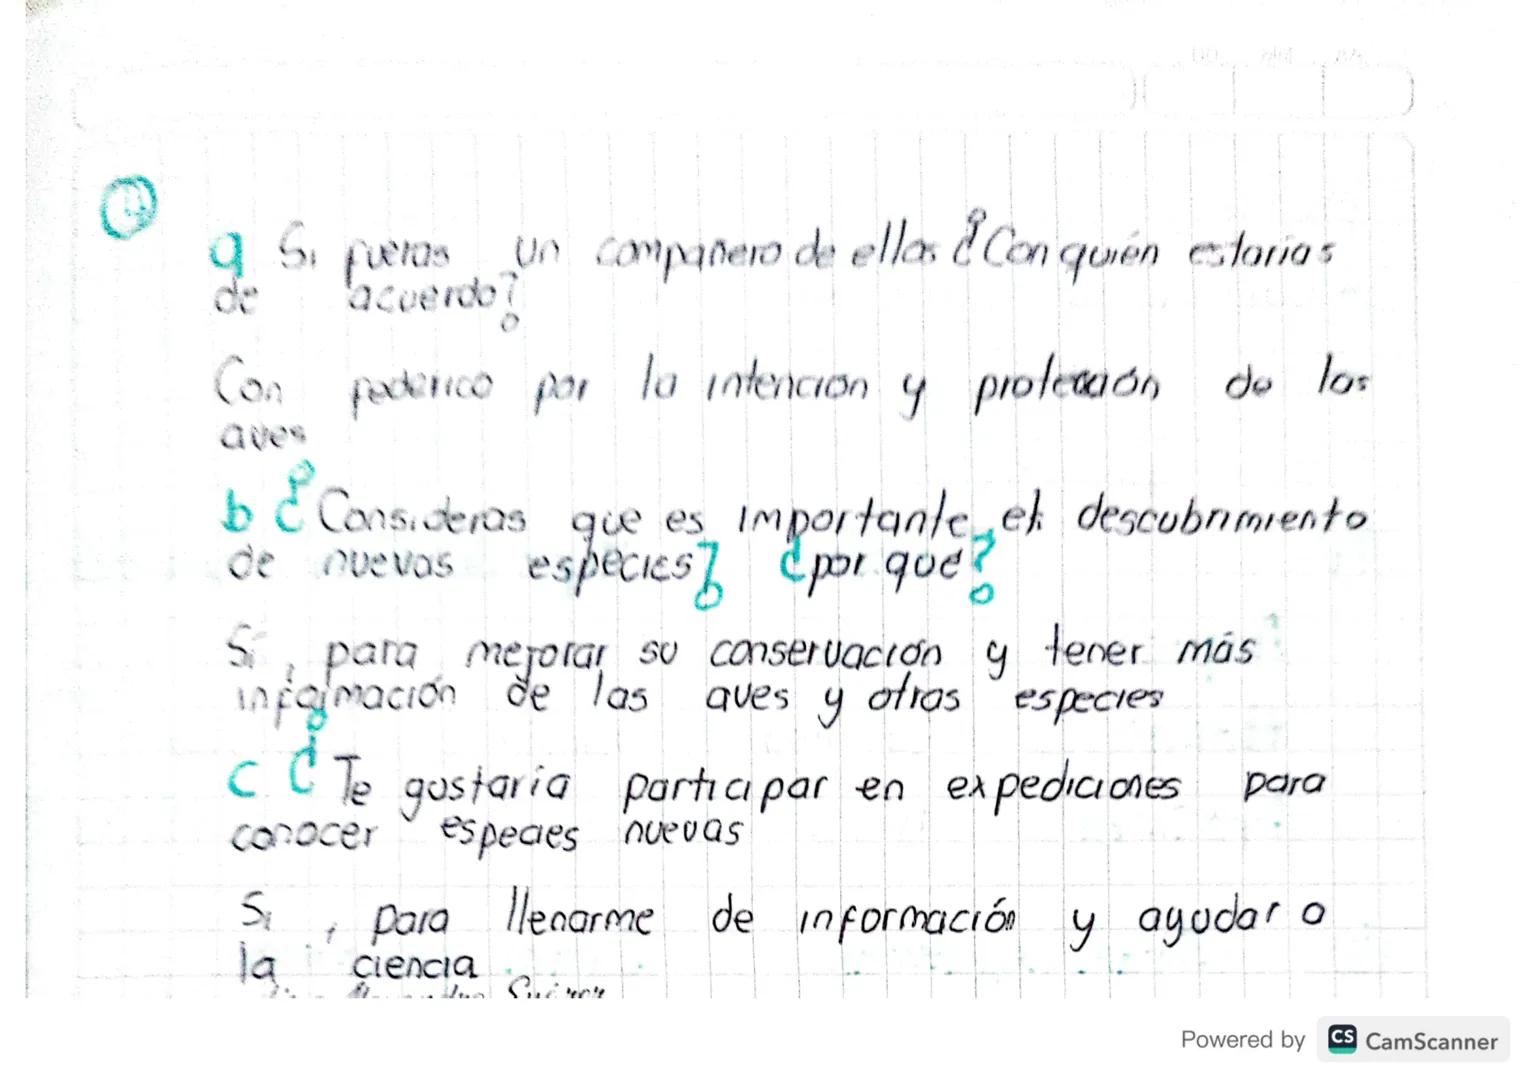 a Si fueras un compañero de ellas ¿Con quién estarias
de acuerdo?
Con pederico por la intención y protección de las
aves
b ¿Consideras que es importante el descubrimiento
de nuevas especies? ¿por qué?
Sí, para mejorar su conservación y tener más
información de las aves y otras especies
c ¿Te gustaría participar en expediciones para
conocer especies nuevas
Si, para llenarme de información y ayudar a
la ciencia
Powered by CS CamScanner